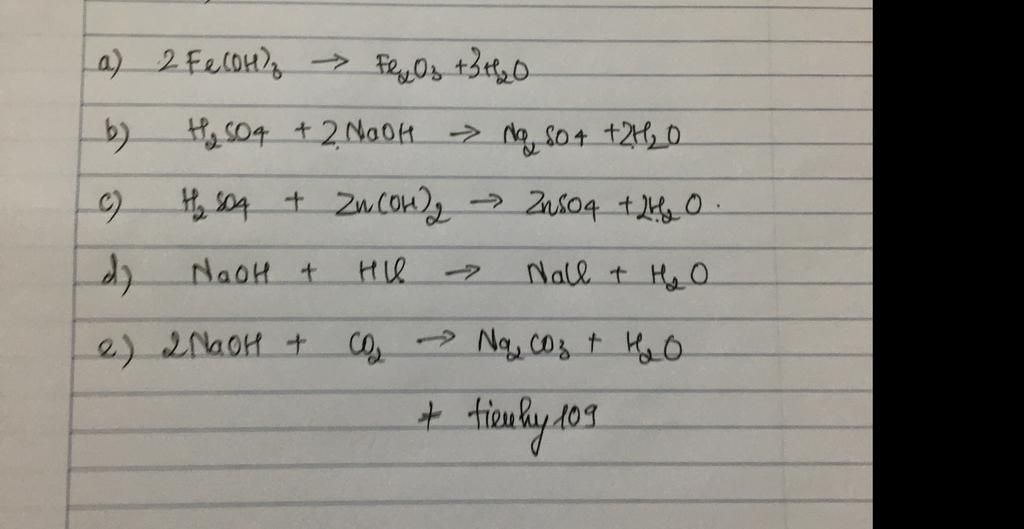 a) 2Fe(OH)₃ → Fe₂O₃ + 3H₂O
b) H₂SO₄ + 2NaOH → Na₂SO₄ + 2H₂O
c) H₂SO₄ + Zn(OH)₂ → ZnSO₄ + 2H₂O.
d) NaOH + HCl → NaCl + H₂O
e) 2NaOH + CO₂ → Na₂CO₃ + H₂O
+ tieuhy109